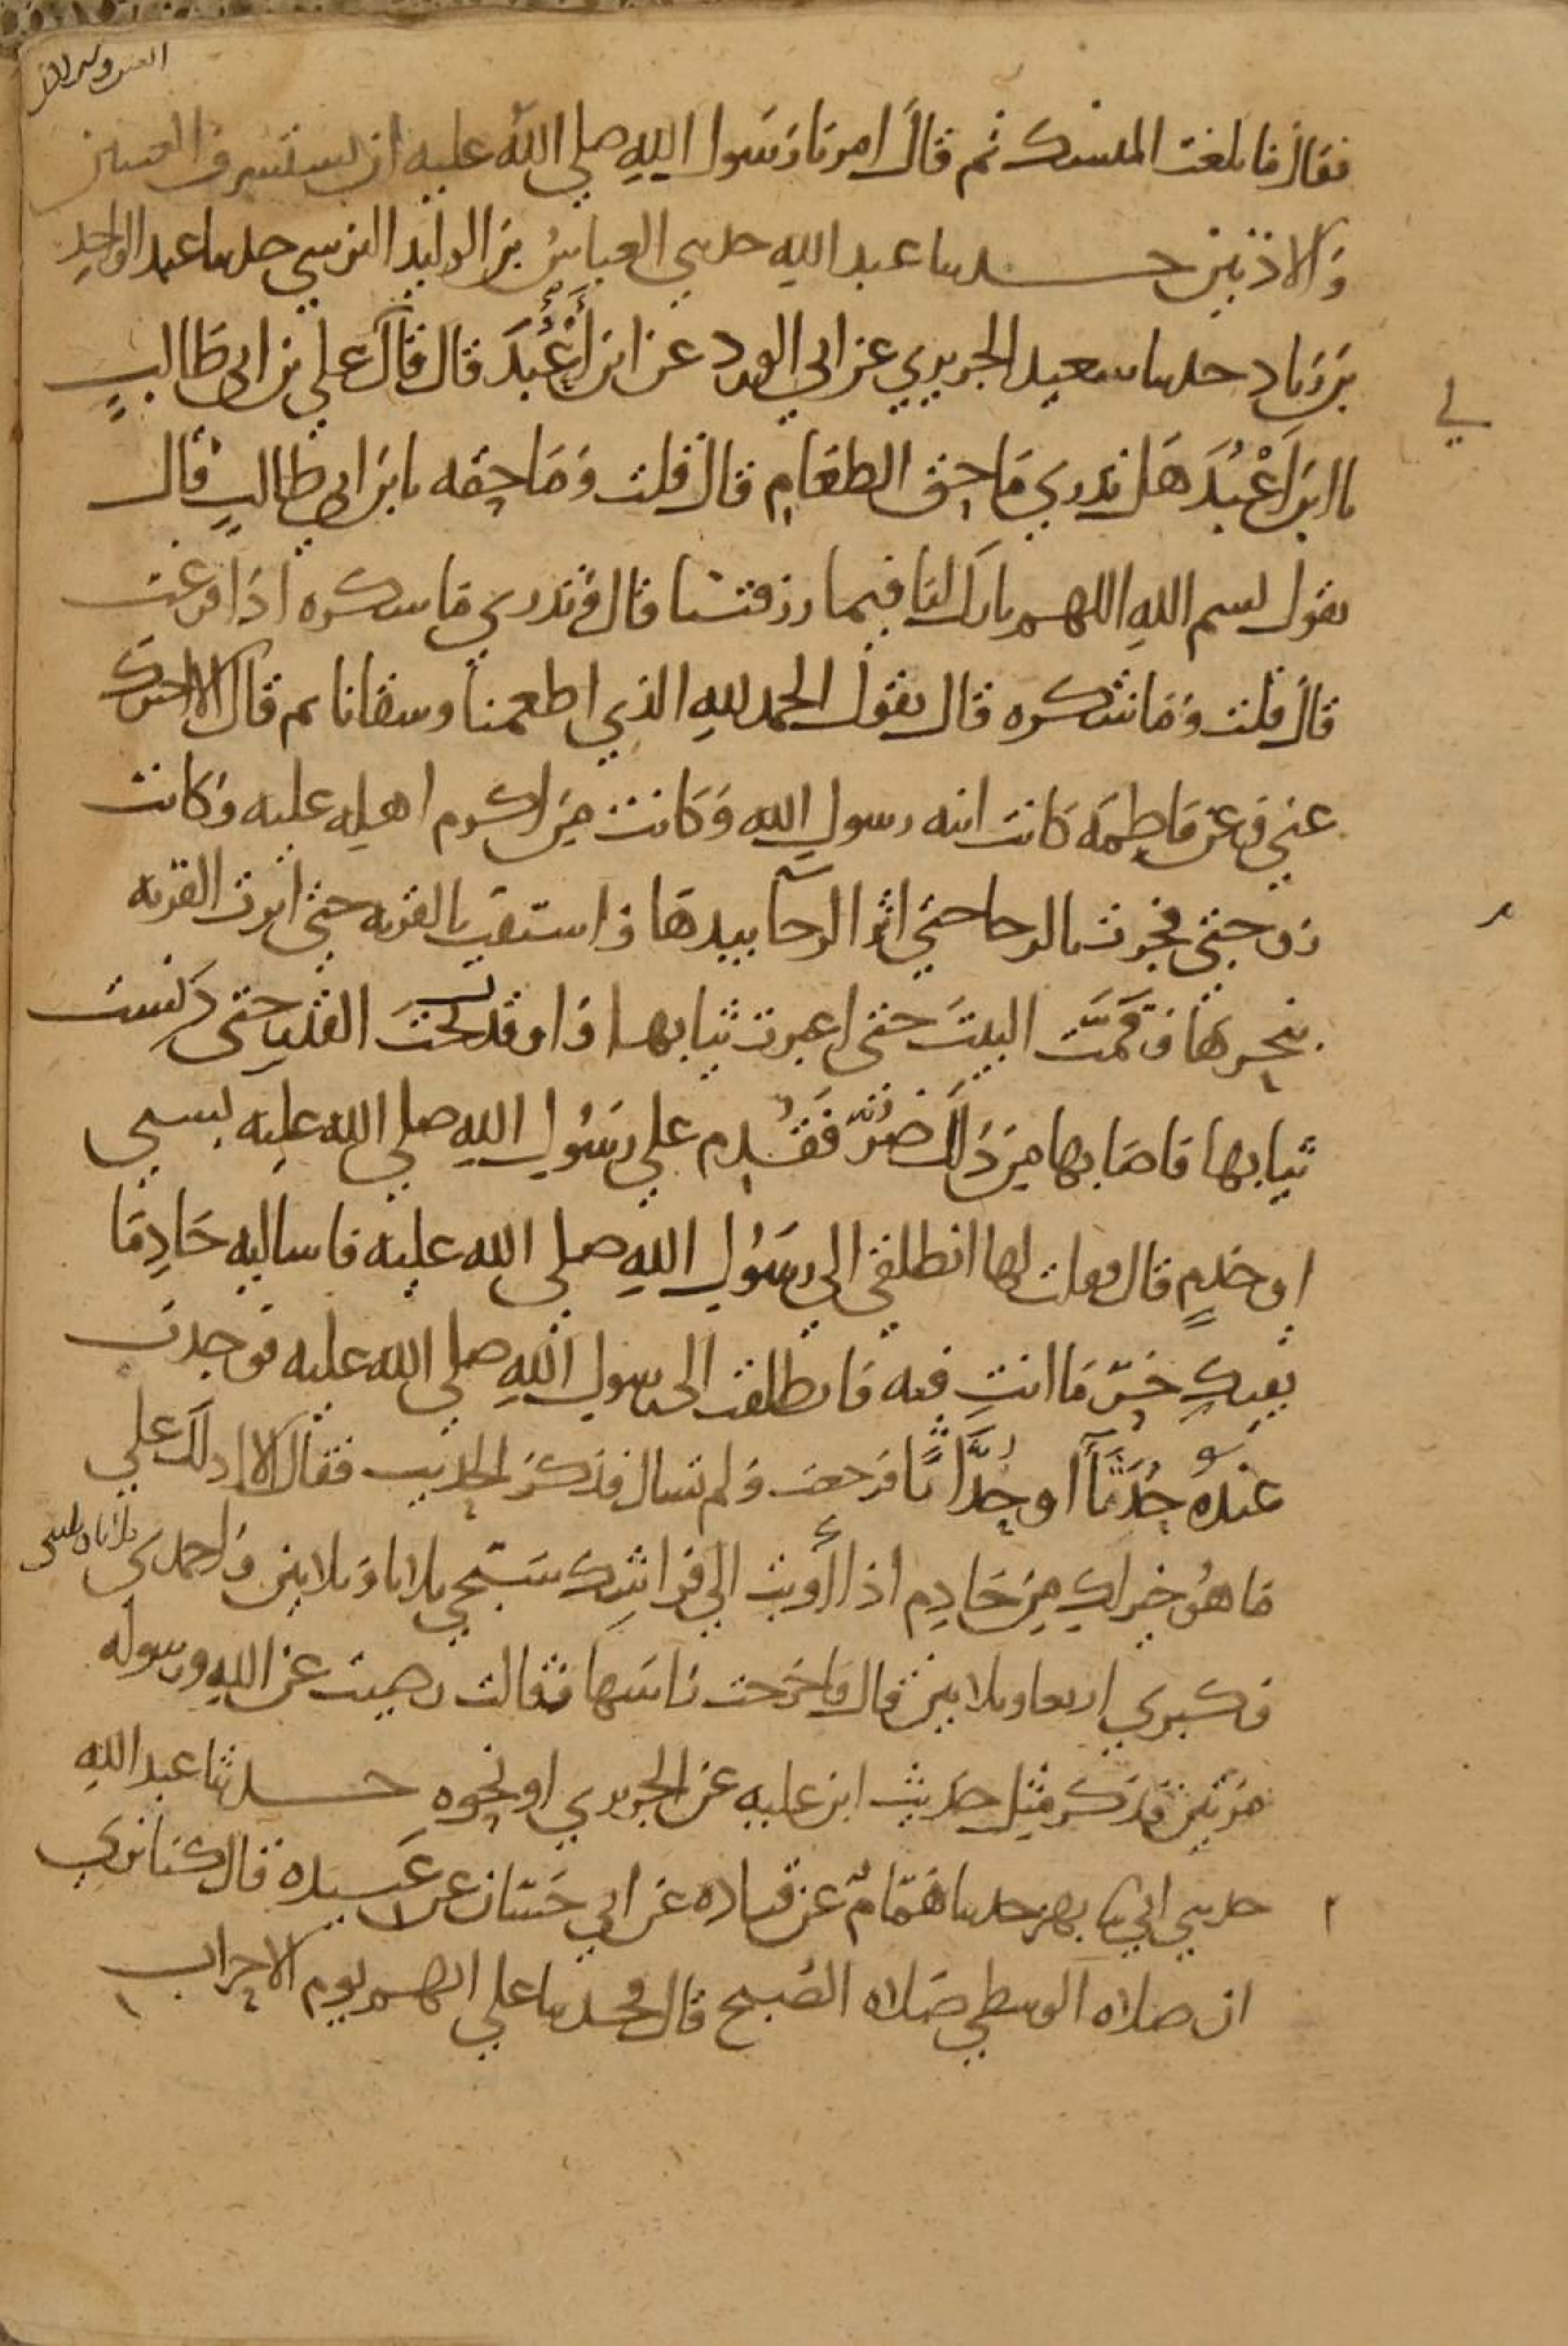 فقال فابلغت المنسك ثم قال امرنا رسول الله صلي الله عليه ان نستشرف العينين
والاذنين حدثنا عبد الله حدثني العباس بن الوليد النرسي حدثنا عبد الواحد
بن زياد حدثنا سعيد الجريري عن ابي الورد عن ابن أَعْبُدَ قال قال علي بن ابي طالبٍ
يا ابن اَعْبُدَ هل تدري ما حق الطعام قال قلت وما حقه يا بن ابي طالبٍ قال
تقول بسم الله اللهم بارك لنا فيما رزقتنا قال وتدري ما شكره اذا فرغت
قال قلت وما شكره قال تقول الحمد لله الذي اطعمنا وسقانا ثم قال الا اخبرك
عني وعن فاطمة كانت ابنه رسول الله وكانت من اكرم اهله عليه وكانت
زوجتي فجرت بالرحا حتي اثر الرحا بيدها واستقت بالقربه حتي اثرت القربه
بنحرها وقَمَّت البيتَ حتى اغبرت ثيابها واوقدت تحتَ القدر حتى دنست
ثيابها فاصابها من ذلك ضرٌّ فقُدم علي رسول الله صلي الله عليه بسبي
او خدمٍ قال فقلت لها انطلقي الي رسول الله صلي الله عليه فاساليه خادِمًا
يقيكِ حَرّ ما انتِ فيه فانطلقت الى رسول الله صلي الله عليه فوجدت
عنده خَدَمًا او خُدَّامًا فرجعت ولم تسال فذكر الحديث فقال الا ادلك علي
ما هو خير لكِ من خادِم اذا أويت الي فراشك سبحي ثلاثا وثلاثين واحمدي ثلاثا وثلثين
وكبري اربعا وثلاثين قال فاخرجت راسها فقالت رضيت عن الله ورسوله
مرتين فذكر مثل حديث ابن عليه عن الجريري او نحوه حدثنا عبد الله
حدثني ابي ثنا بهز حدثنا همّامٌ عن قتاده عن ابي حسّان عن عَبِيده قال كنا نري
ان صلاه الوسطي صلاه الصُبح قال فحدثنا علي انهم يوم الاحزاب